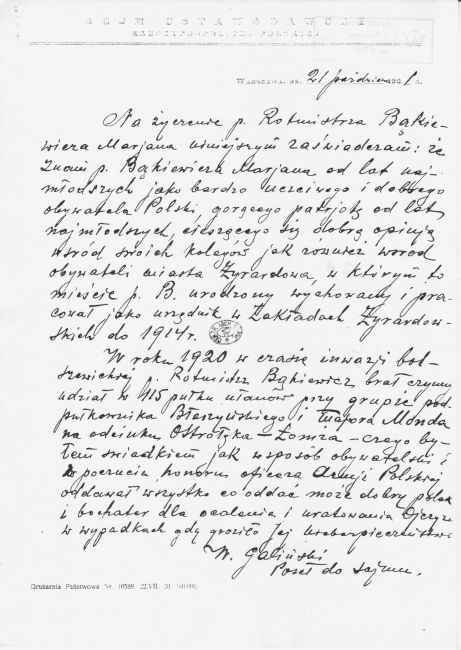 SEJM USTAWODAWCZY
RZECZYPOSPOLITEJ POLSKIEJ
WARSZAWA, DN. 21 październ 1921 r.
Na życzenie p. Rotmistrza Bąkie-
wicza Marjana niniejszym zaświadczam: że
znam p. Bąkiewicza Marjana od lat naj-
młodszych jako bardzo uczciwego i dobrego
obywatela Polski, gorącego patrjotę od lat
najmłodszych, cieszącego się dobrą opinją
wśród swoich kolegów jak również wśrod
obywateli miasta Żyrardowa, w którym to
mieście p. B. urodzony wychowany i pra-
cował jako urzędnik w Zakładach Żyrardow-
skich do 1914 r.
W roku 1920 w czasie inwazji bol-
szewickiej p. Rotmistrz Bąkiewicz brał czynny
udział w 115 pułku ułanów przy grupie pod-
pułkownika i majora Monda
na odcinku Ostrołęka – Łomża – czego by-
łem świadkiem jak w sposób obywatelski i
w poczuciu honoru oficera Armji Polskiej
oddawał wszystko co oddać może dobry polak
i bochater dla ocalenia i uratowania Ojczyzny
w wypadkach gdy groziło jej niebezpieczeństwo
W. Galiński
Poseł do sejmu.
Drukarnia Państwowa Nr. 10589. 22.VII. 20. 100.000.